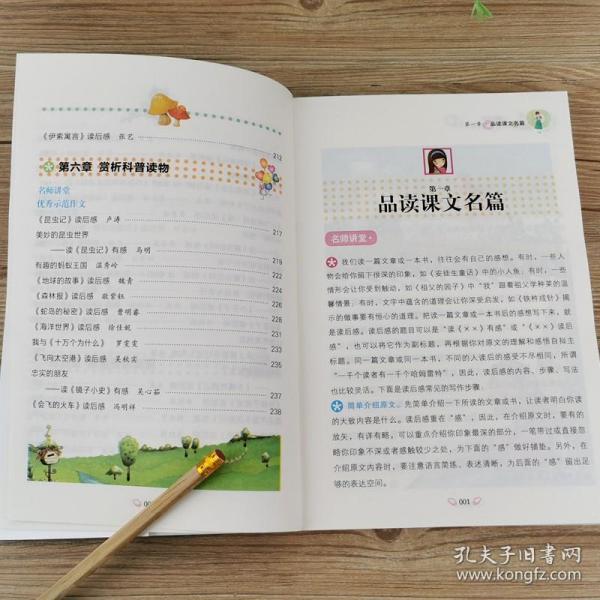 《伊索寓言》读后感 张艺 212
第六章 赏析科普读物
名师讲堂
优秀示范作文
《昆虫记》读后感 卢涛 217
美妙的昆虫世界
——读《昆虫记》有感 马明 219
有趣的蚂蚁王国 温秀岭 221
《地球的故事》读后感 魏青 223
《森林报》读后感 敬紫钰 225
《蛇岛的秘密》读后感 曹明睿 227
《海洋世界》读后感 徐佳妮 229
我与《十万个为什么》 罗雯雯 231
《飞向太空港》读后感 吴秋实 232
忠实的朋友
——读《镜子小史》有感 吴心茹 235
《会飞的火车》读后感 冯明祥 238
第一章 品读课文名篇
第一章
品读课文名篇
名师讲堂
我们读一篇文章或一本书，往往会有自己的感想。有时，一些人
物会给你留下很深的印象，如《安徒生童话》中的小人鱼；有时，一些
情形会让你受到触动，如《祖父的园子》中“我”跟着祖父学种菜的温
馨情景；有时，文字中蕴含的道理会让你深受启发，如《铁杵成针》揭
示的做事要有恒心的道理。把读一篇文章或一本书后的感想写下来，就
是读后感。读后感的题目可以是“读《××》有感”或“《××》读后
感”，也可以将它作为副标题，再根据你对原文的理解和感悟自拟主
标题。同一篇文章或同一本书，不同的人读后的感受不尽相同，所谓
“一千个读者有一千个哈姆雷特”，因此，读后感的内容、步骤、写法
也比较灵活。下面是读后感常见的写作步骤：
简单介绍原文。先简单介绍一下所读的文章或书，让读者明白你读
的大致内容是什么。读后感重在“感”，因此，在介绍原文时，要有的
放矢，有详有略，可以重点介绍你印象最深的部分，一笔带过或直接忽
略你印象不深或者感触较少之处，为下面的“感”做好铺垫。另外，在
介绍原文内容时，要注意语言简练、表述清晰，为后面的“感”留出足
够的表达空间。
001
孔夫子旧书网
www.kongfz.com